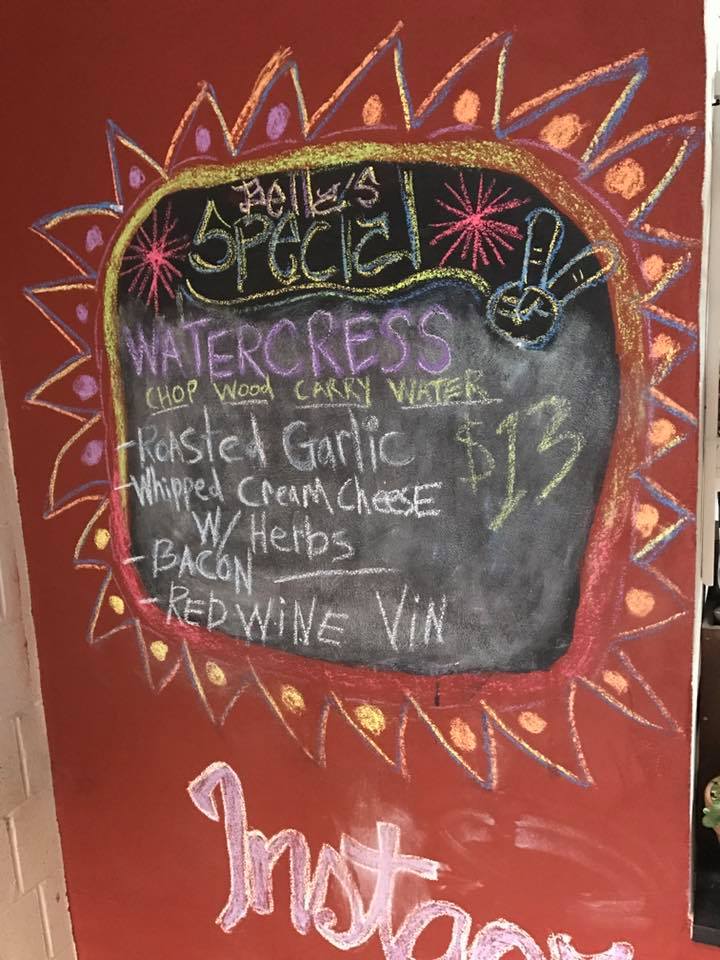 Bella's
Special
WATERCRESS
CHOP Wood CARRY WATER
-Roasted Garlic $13
-Whipped Cream CHEESE
W/ Herbs
-BACON
-RED WINE VIN